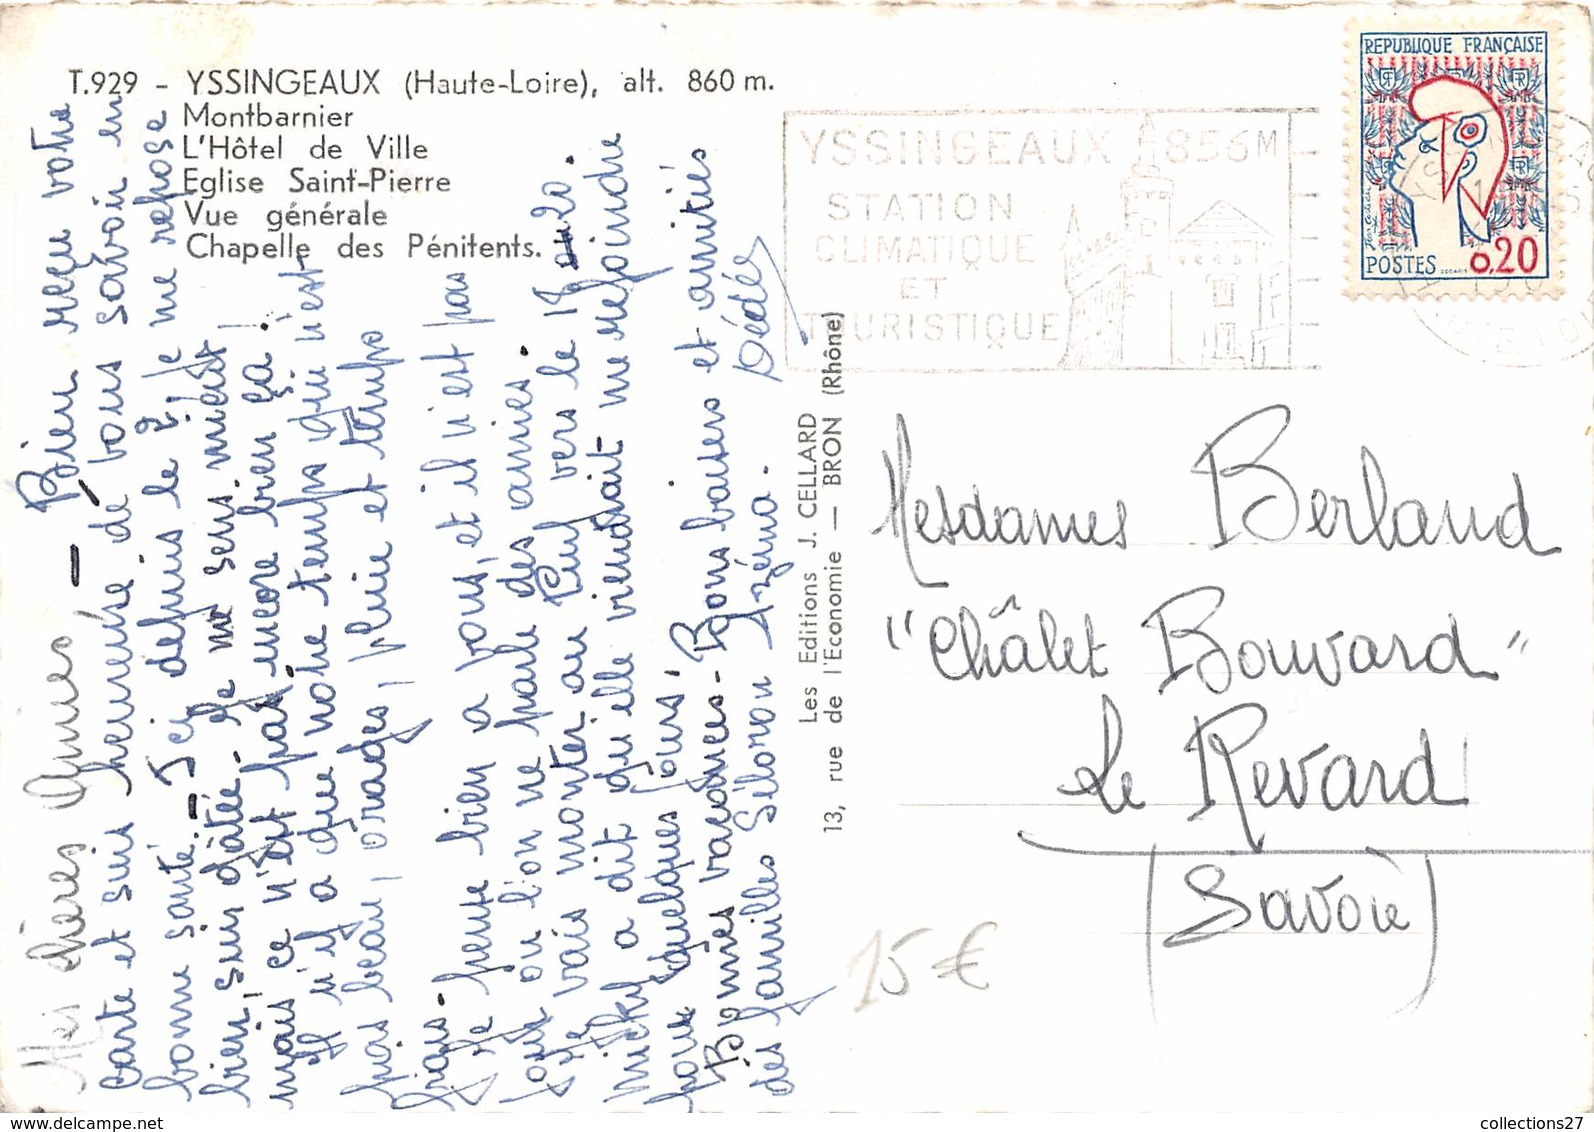 T.929 - YSSINGEAUX (Haute-Loire), alt. 860 m.
Montbarnier
L'Hôtel de Ville
Eglise Saint-Pierre
Vue générale
Chapelle des Pénitents.
Mes chères Amies, — Bien reçu votre
carte et suis heureuse de vous savoir en
bonne santé. — Ici depuis le 2, je me repose
bien, suis gâtée. Je me sens mieux
mais ce n'est pas encore bien ça !
Il n'y a que notre temps qui n'est
pas beau, orages, pluie et temps
frais.
Je pense bien à vous, et il n'est pas
jour où l'on ne parle des amies.
Je vais monter au Puy vers le 18 ou 20.
Micky a dit qu'elle viendrait me rejoindre
pour quelques jours.
Bonnes vacances - Bons baisers et amitiés
des familles Siloron Azéma. Dédée
Les Editions J. CELLARD
13, rue de l'Economie — BRON (Rhône)
YSSINGEAUX 856M
STATION
CLIMATIQUE
ET
TOURISTIQUE
REPUBLIQUE FRANÇAISE
POSTES 0,20
Mesdames Berland
"Châlet Bouvard"
Le Revard
(Savoie)
15 €
collections27